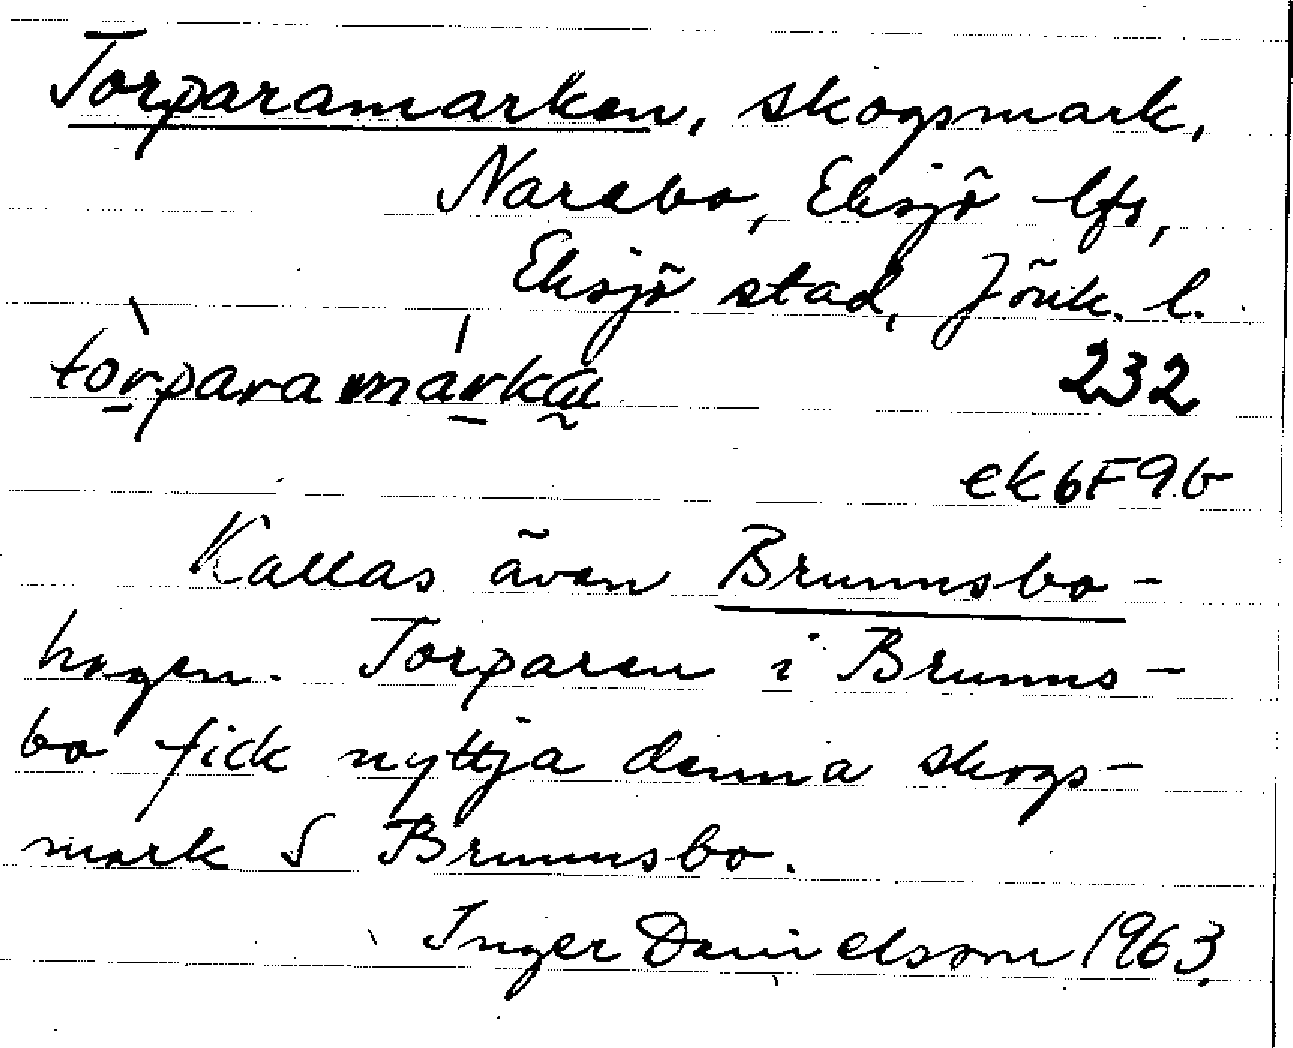 Torparamarken, skogsmark,
Narebo, Eksjö lfs,
Eksjö stad, Jönk. l.
tòrparamárkạ 232
ek 6F9b
Kallas även Brunnsbo-
hagen. Torparen i Brunns-
bo fick nyttja denna skogs-
mark S Brunnsbo.
Inger Danielsson 1963.